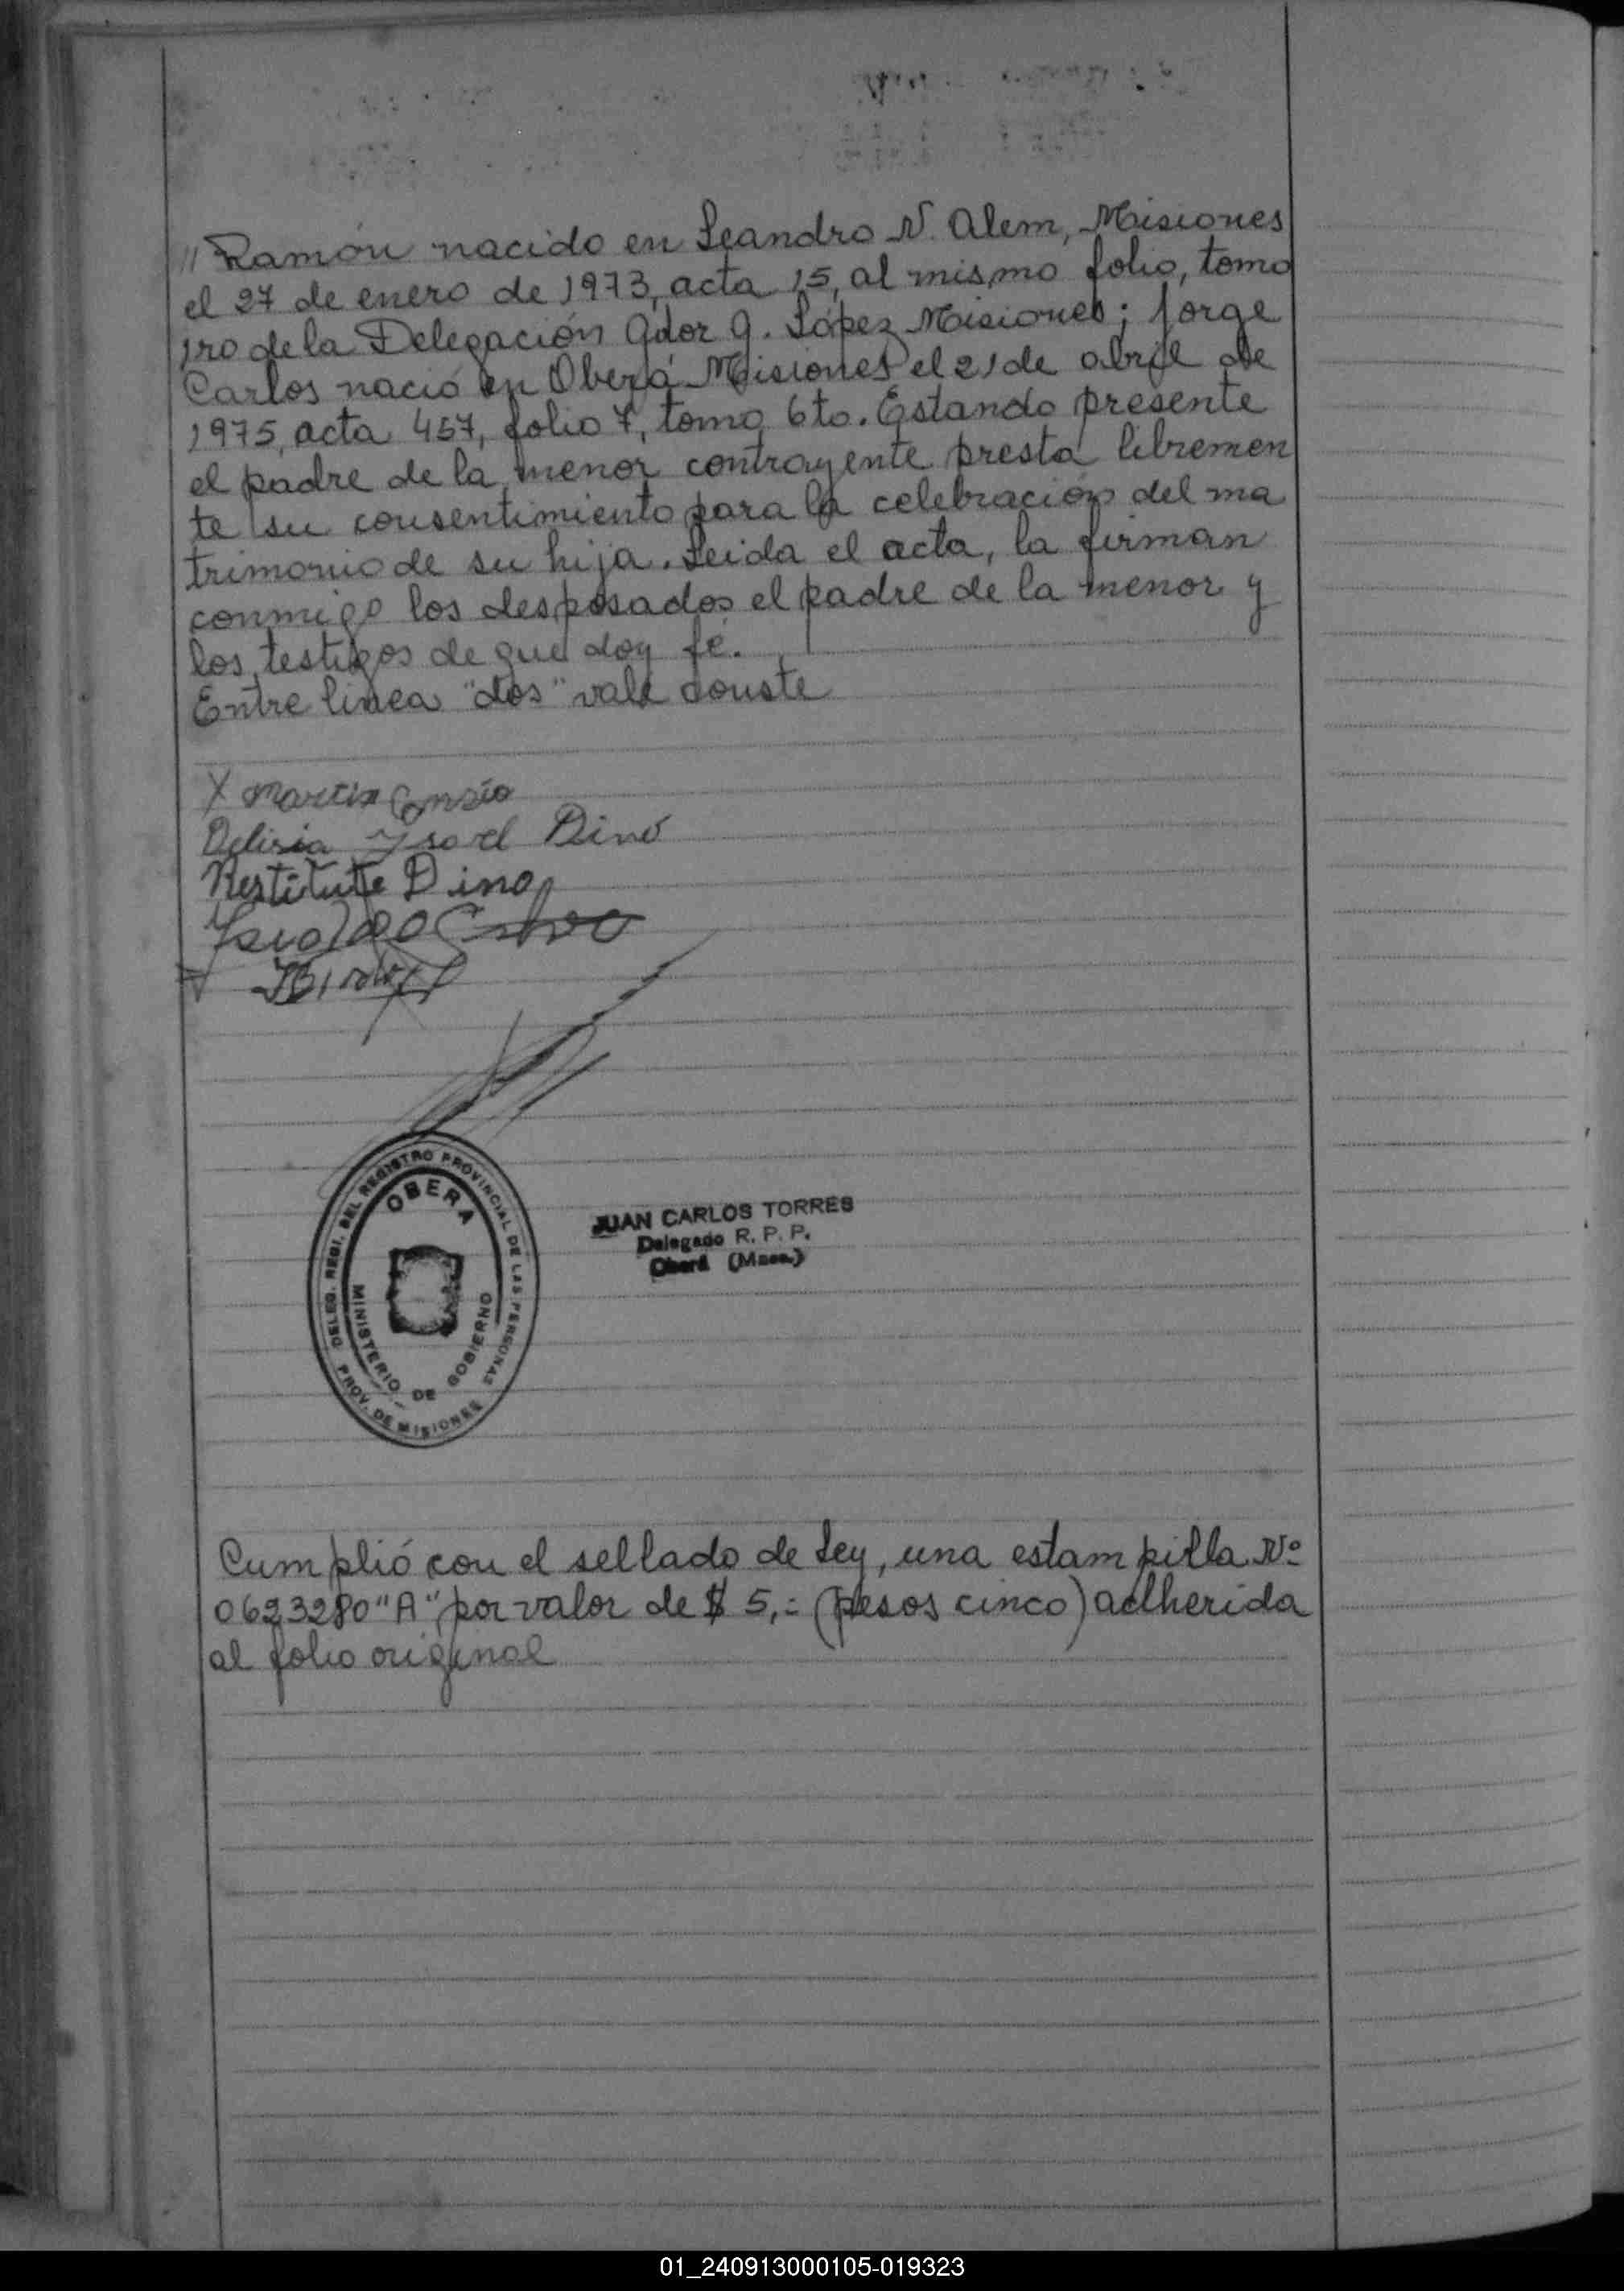 // Ramón nacido en Leandro N. Alem, Misiones
el 27 de enero de 1973, acta 15, al mismo folio, tomo
1ro de la Delegación Gdor G. López Misiones; Jorge
Carlos nació en Oberá Misiones el 21 de abril de
1975, acta 457, folio 7, tomo 6to. Estando presente
el padre de la menor contrayente presta libremen
te su consentimiento para la celebración del ma
trimonio de su hija. Leida el acta, la firman
conmigo los desposados el padre de la menor y
los testigos de que doy fé.
Entre linea "dos" vale conste
X Martin
Delisia Dino
Restituto Dino
DELEG. REGI. DEL REGISTRO PROVINCIAL DE LAS PERSONAS
OBERA
MINISTERIO DE GOBIERNO
PROV. DE MISIONES
JUAN CARLOS TORRES
Delegado R. P. P.
Oberá (Mnes.)
Cumplió con el sellado de Ley, una estampilla Nº
0623280 "A" por valor de $ 5,= (pesos cinco) adherida
al folio original
01_240913000105-019323